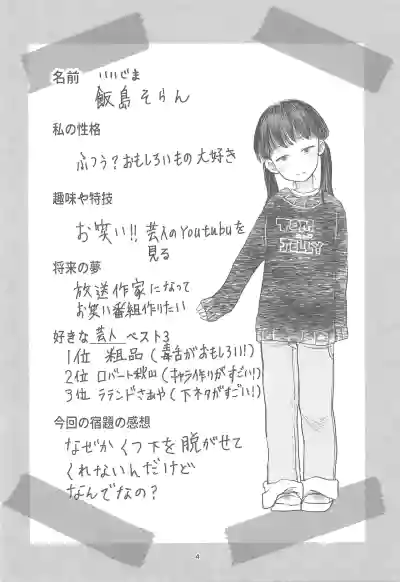 名前 いいじま
飯島そらん
私の性格
ふつう?おもしろいもの大好き
趣味や特技
お笑い!!芸人のYoutubuを
見る
将来の夢
放送作家になって
お笑い番組作りたい
好きな芸人ベスト3
1位 粗品(毒舌がおもしろい!)
2位 ロバート秋山(キャラ作りがすごい!)
3位 ラランドさあや(下ネタがすごい!)
今回の宿題の感想
なぜかくつ下を脱がせて
くれないんだけど
なんでなの?
TOM
AND
JELLY
4